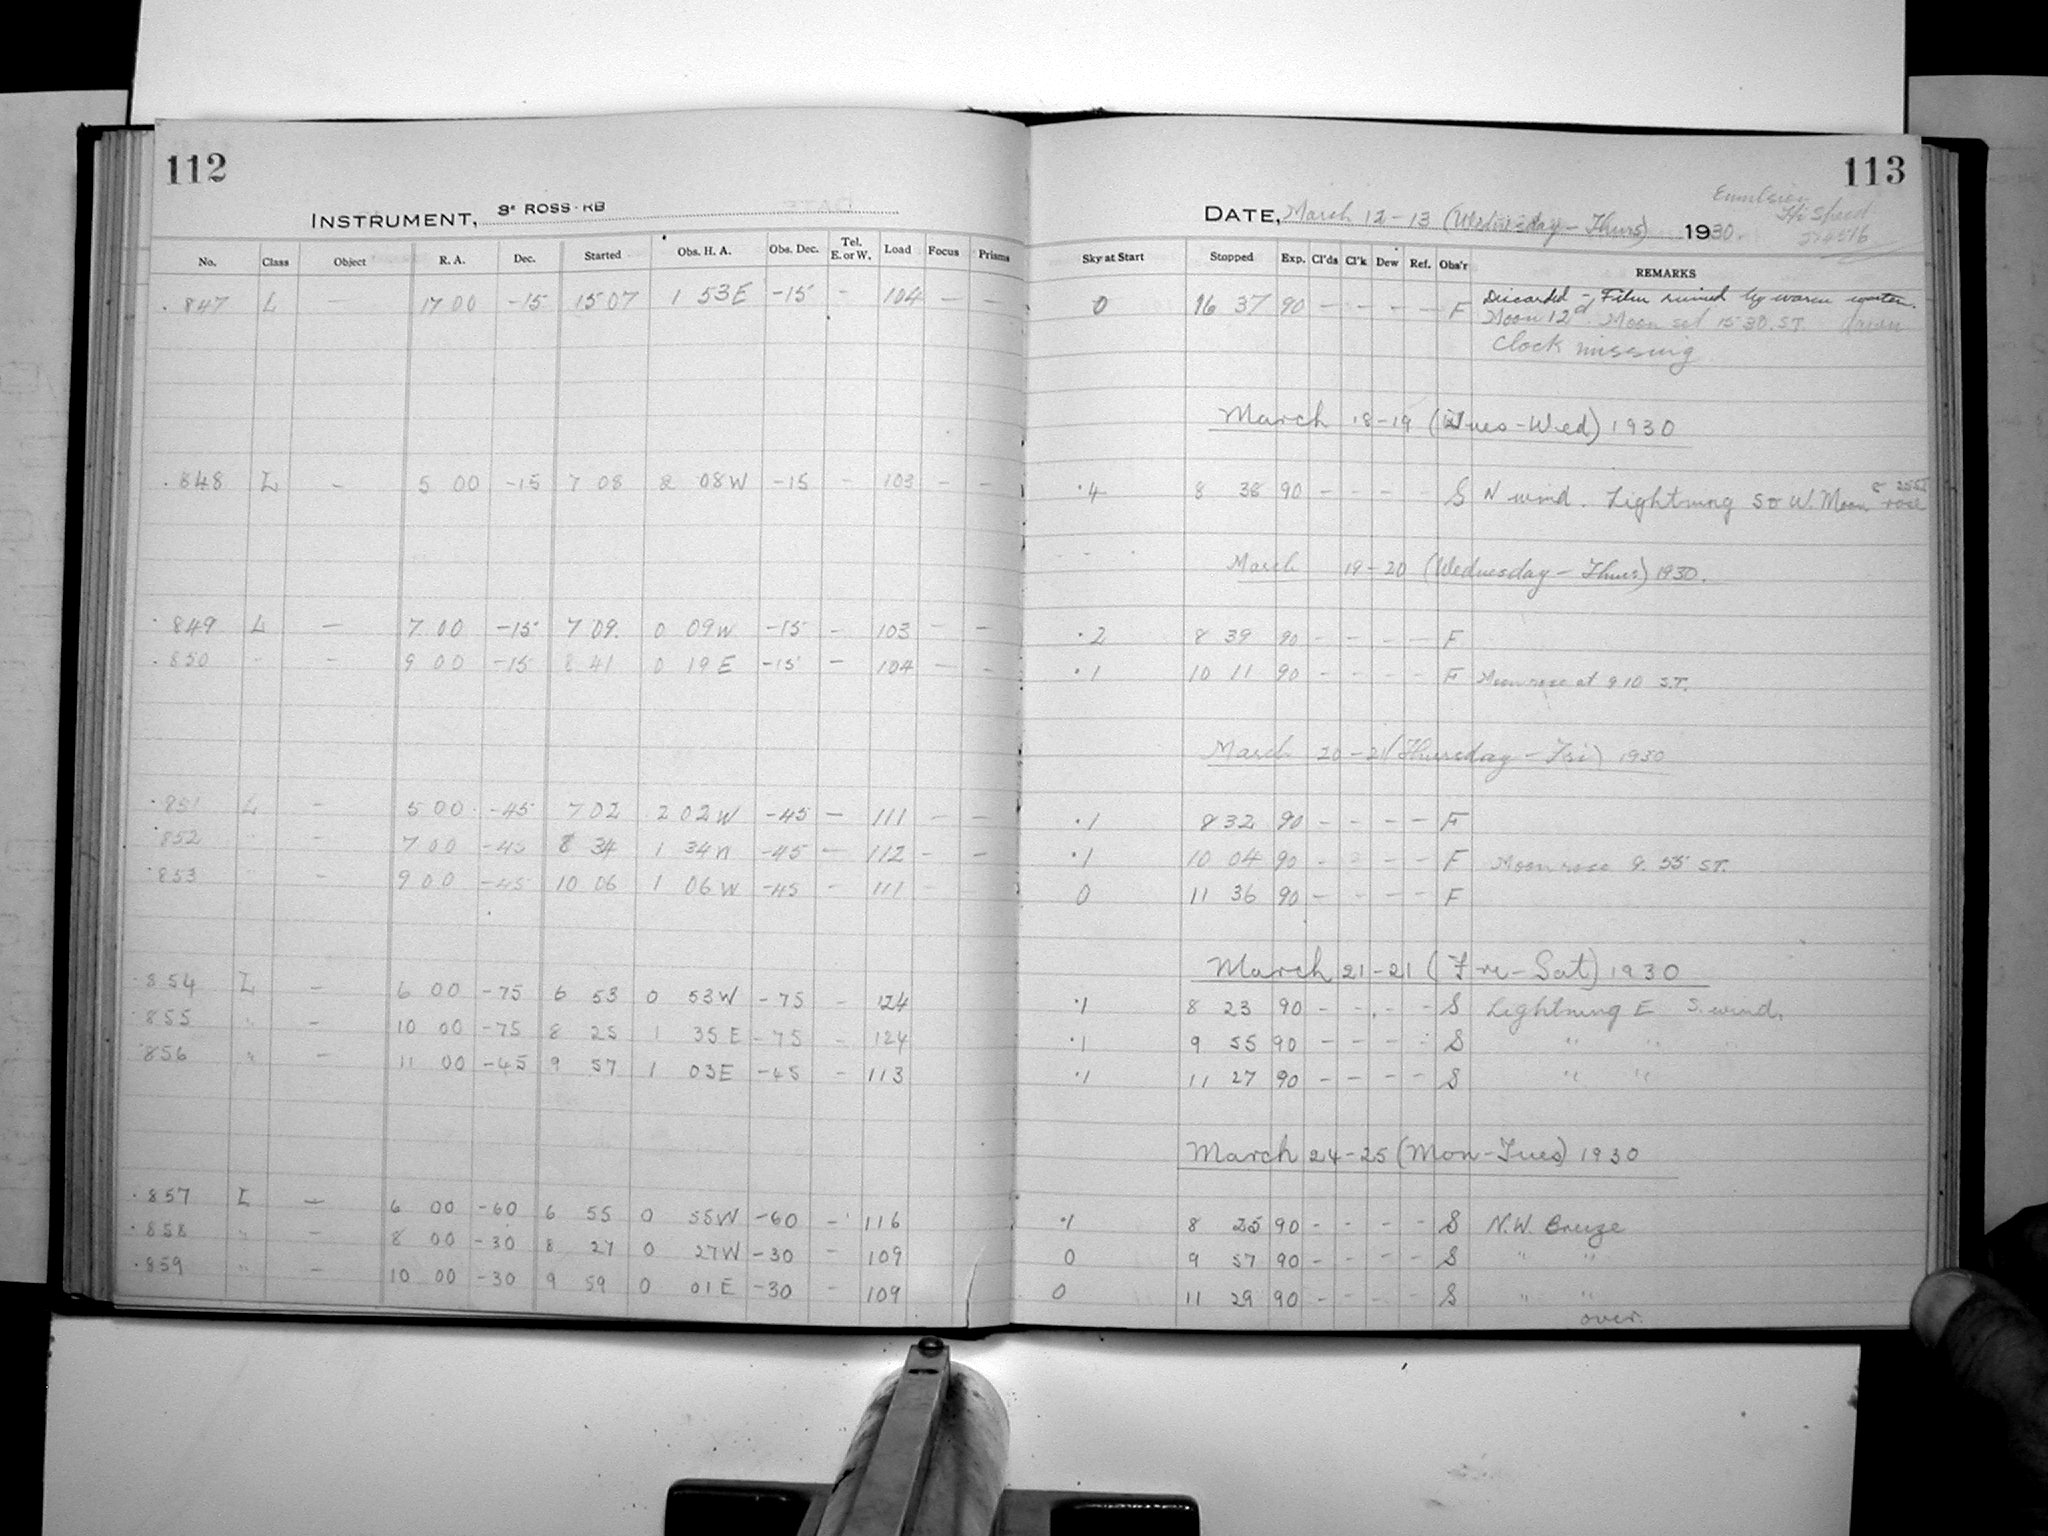 112
INSTRUMENT, 3" ROSS-RB
No. Class Object R. A. Dec. Started Obs. H. A. Obs. Dec. Tel. E. or W. Load Focus Prisms
. 847 L — 17 00 -15 15 07 1 53E -15 - 104 — —
. 848 L — 5 00 -15 7 08 2 08W -15 - 103 - -
. 849 L — 7 00 -15 7 09. 0 09W -15 - 103 - -
. 850 " — 9 00 -15 8 41 0 19E -15 — 104 — —
. 851 L — 5 00 -45 7 02 2 02W -45 — 111 - -
. 852 " — 7 00 -45 8 34 1 34W -45 — 112 - -
. 853 " — 9 00 -45 10 06 1 06W -45 - 111 - -
. 854 L — 6 00 -75 6 53 0 53W -75 - 124
. 855 " — 10 00 -75 8 25 1 35E -75 - 124
. 856 " — 11 00 -45 9 57 1 03E -45 - 113
. 857 L — 6 00 -60 6 55 0 55W -60 - 116
. 858 " — 8 00 -30 8 27 0 27W -30 - 109
. 859 " — 10 00 -30 9 59 0 01E -30 - 109
113
Emulsion
Hi Speed
DATE, March 12-13 (Wednesday - Thurs) 1930.
Sky at Start Stopped Exp. Cl'ds Cl'k Dew Ref. Obs'r REMARKS
0 16 37 90 — — — — F Discarded - Film ruined by warm water.
Moon 12d. Moon set 15 30. S.T. dawn
Clock missing
March 18-19 (Tues-Wed) 1930
.4 8 38 90 - - - - S N wind. Lightning S to W. Moon rose
March 19-20 (Wednesday - Thurs) 1930.
.2 8 39 90 - - - — F
.1 10 11 90 - - - - F Moon rose at 9 10 S.T.
March 20-21 (Thursday - Fri) 1930
.1 8 32 90 - - - — F
.1 10 04 90 - - - — F Moon rose 9. 55 S.T.
0 11 36 90 - - - - F
March 21-21 (Fri-Sat) 1930
.1 8 23 90 - - - - S Lightning E S. wind.
.1 9 55 90 - - - - S " " "
.1 11 27 90 - - - - S " "
March 24-25 (Mon-Tues) 1930
.1 8 25 90 - - - - S N.W. Breeze
0 9 57 90 - - - - S " "
0 11 29 90 - - - - S " "
over.